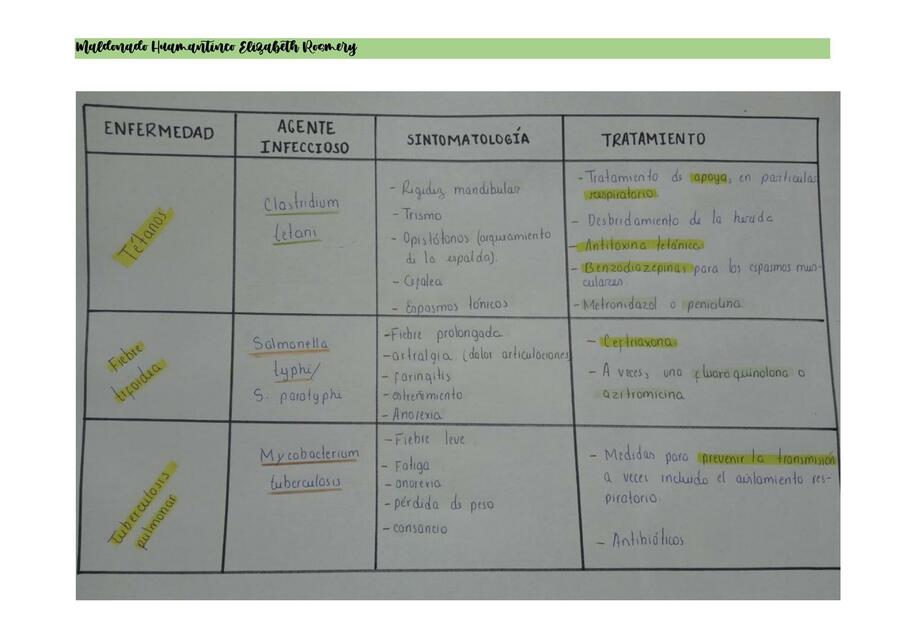 Maldonado Huamantinco Elizabeth Rosmery
ENFERMEDAD
AGENTE
INFECCIOSO
SINTOMATOLOGÍA
TRATAMIENTO
Tétanos
Clostridium
tetani
- Rigidez mandibular
- Trismo
- Opistótonos (arqueamiento
de la espalda).
- Cefalea
- Espasmos tónicos
- Tratamiento de apoyo, en particular
respiratorio.
- Desbridamiento de la herida
- Antitoxina tetánica
- Benzodiazepinas para los espasmos mus-
culares.
- Metronidazol o penicilina
Fiebre
tifoidea
Salmonella
typhi/
S. paratyphi
- Fiebre prolongada
- artralgia (dolor articulaciones)
- faringitis
- estreñimiento
- Anorexia
- Ceftriaxona
- A veces, una fluoroquinolona o
azitromicina
Tuberculosis
pulmonar
Mycobacterium
tuberculosis
- Fiebre leve
- Fatiga
- anorexia
- pérdida de peso
- cansancio
- Medidas para prevenir la transmisión
a veces incluido el aislamiento res-
piratorio.
- Antibióticos